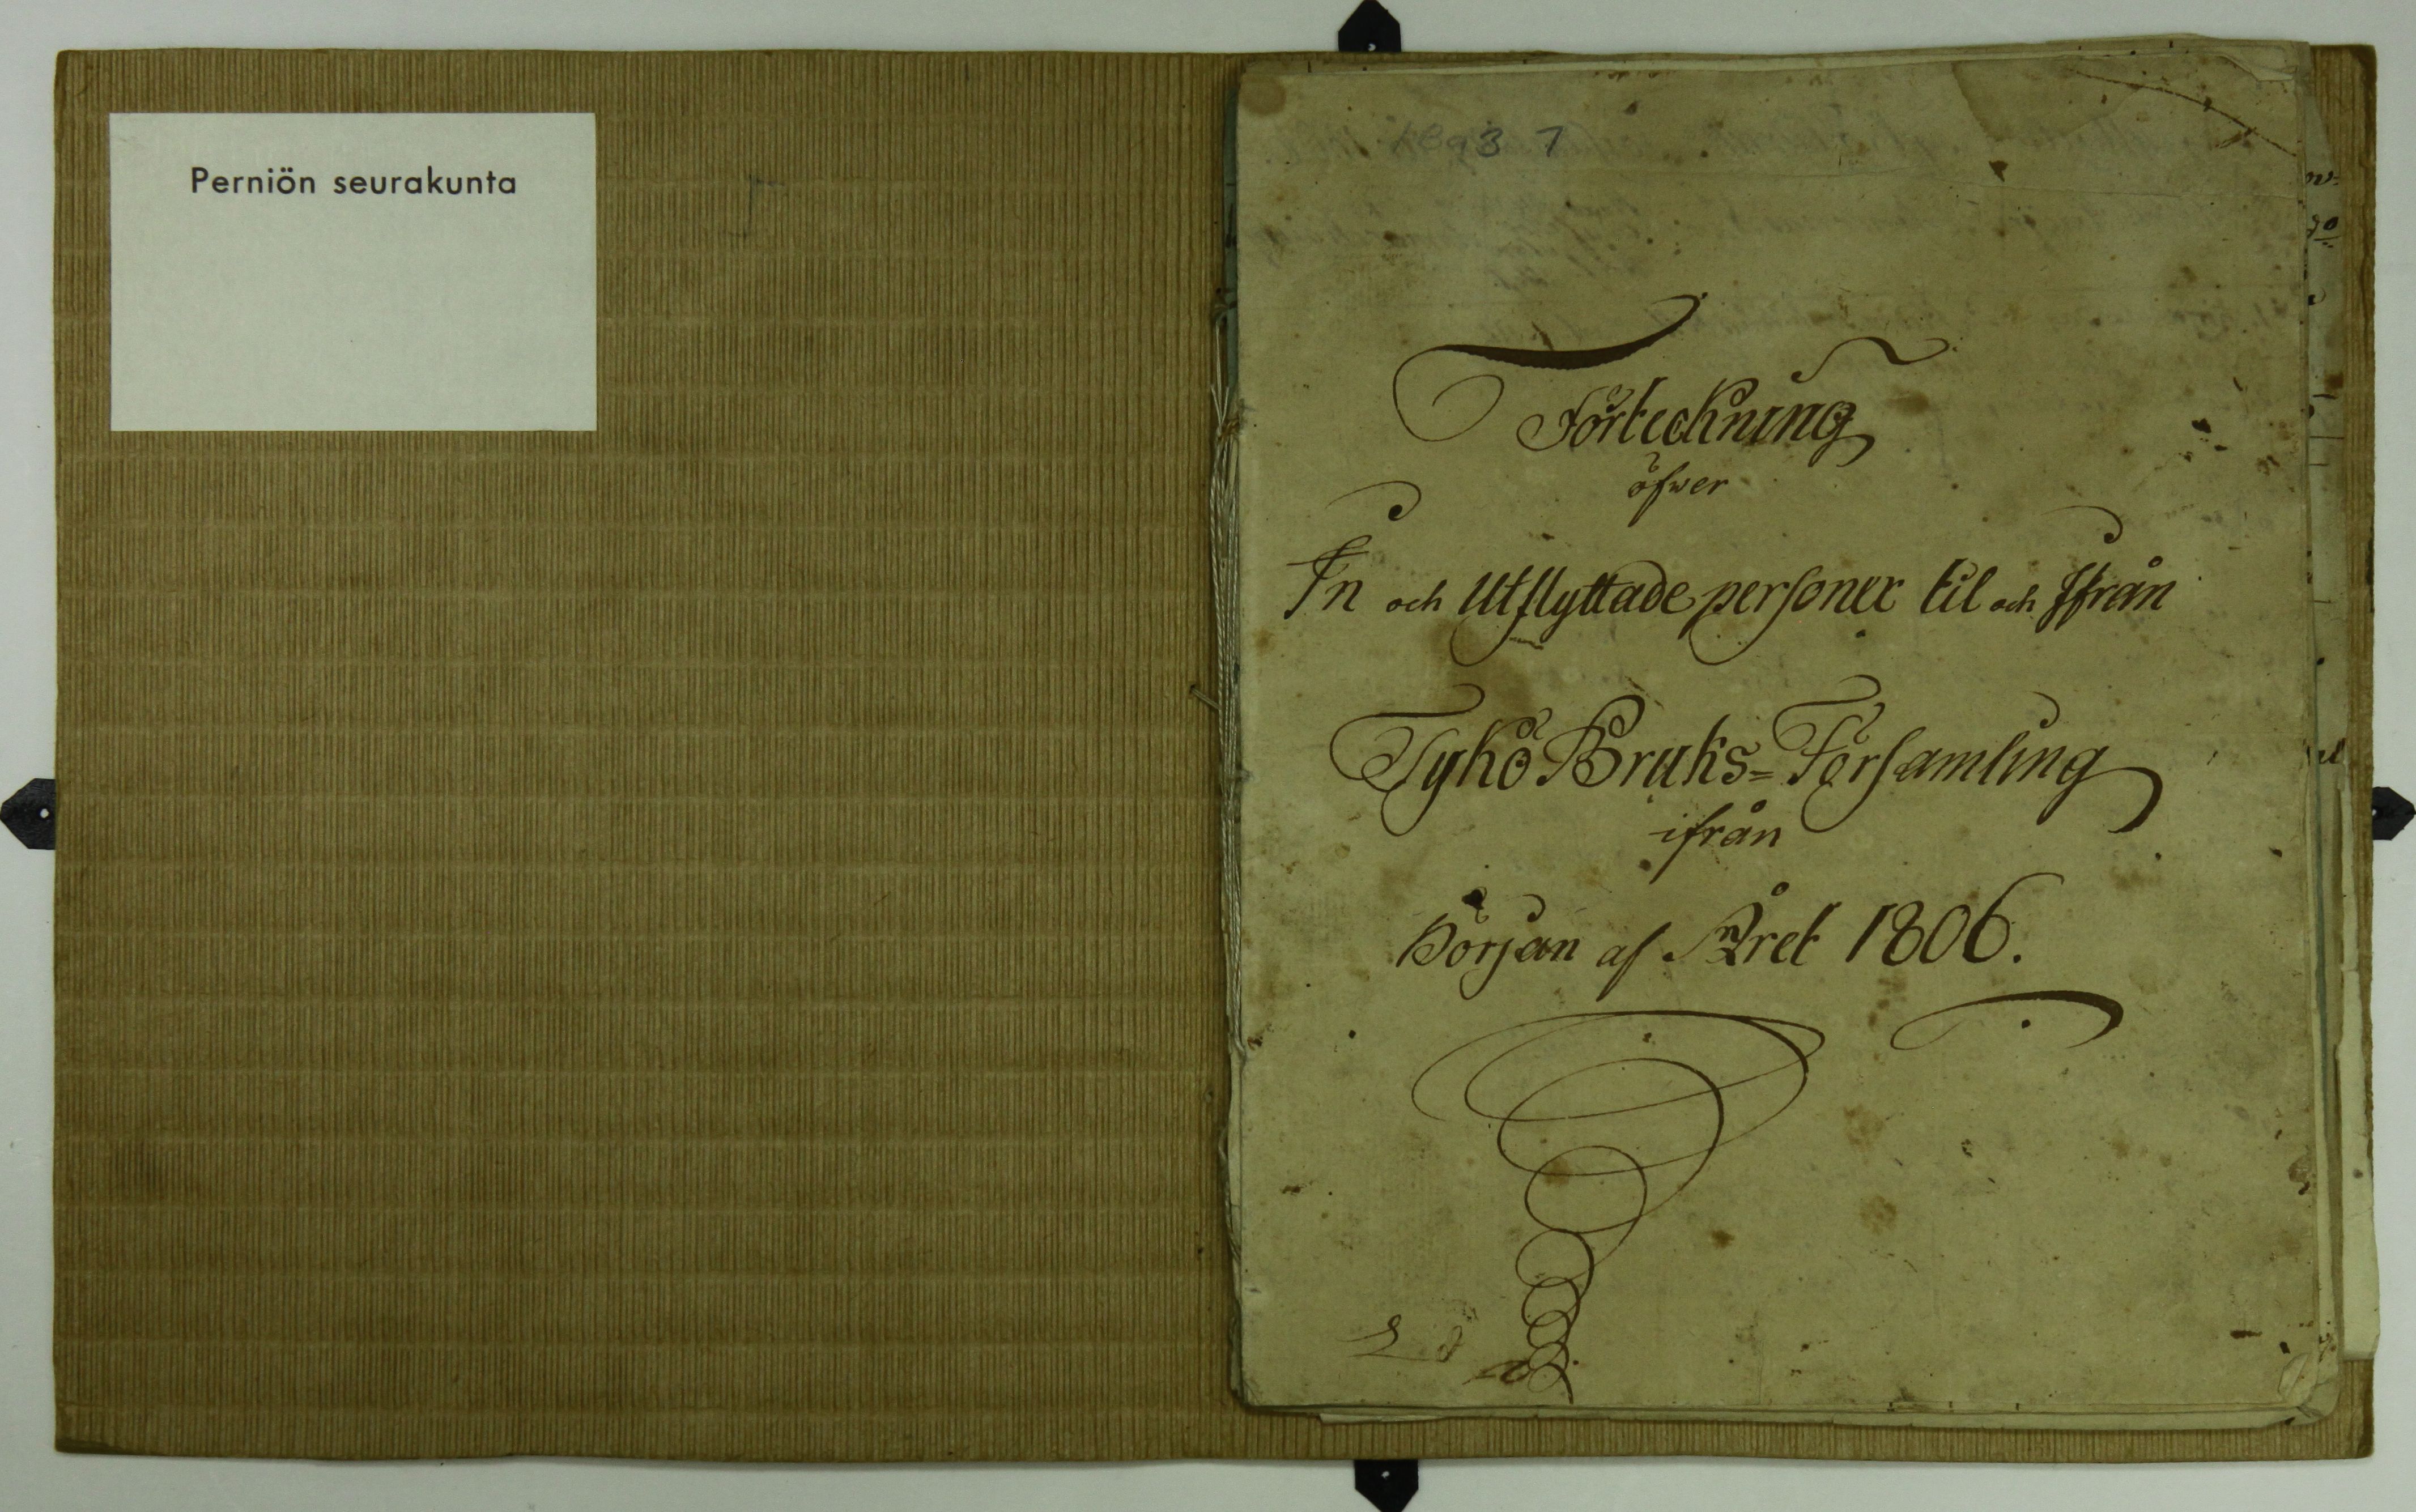 Perniön seurakunta
Förteckning
öfwer
In och Utflyttade personer til och Ifrån
Tykö Bruks=Församling
ifrån
Början af Året 1806.